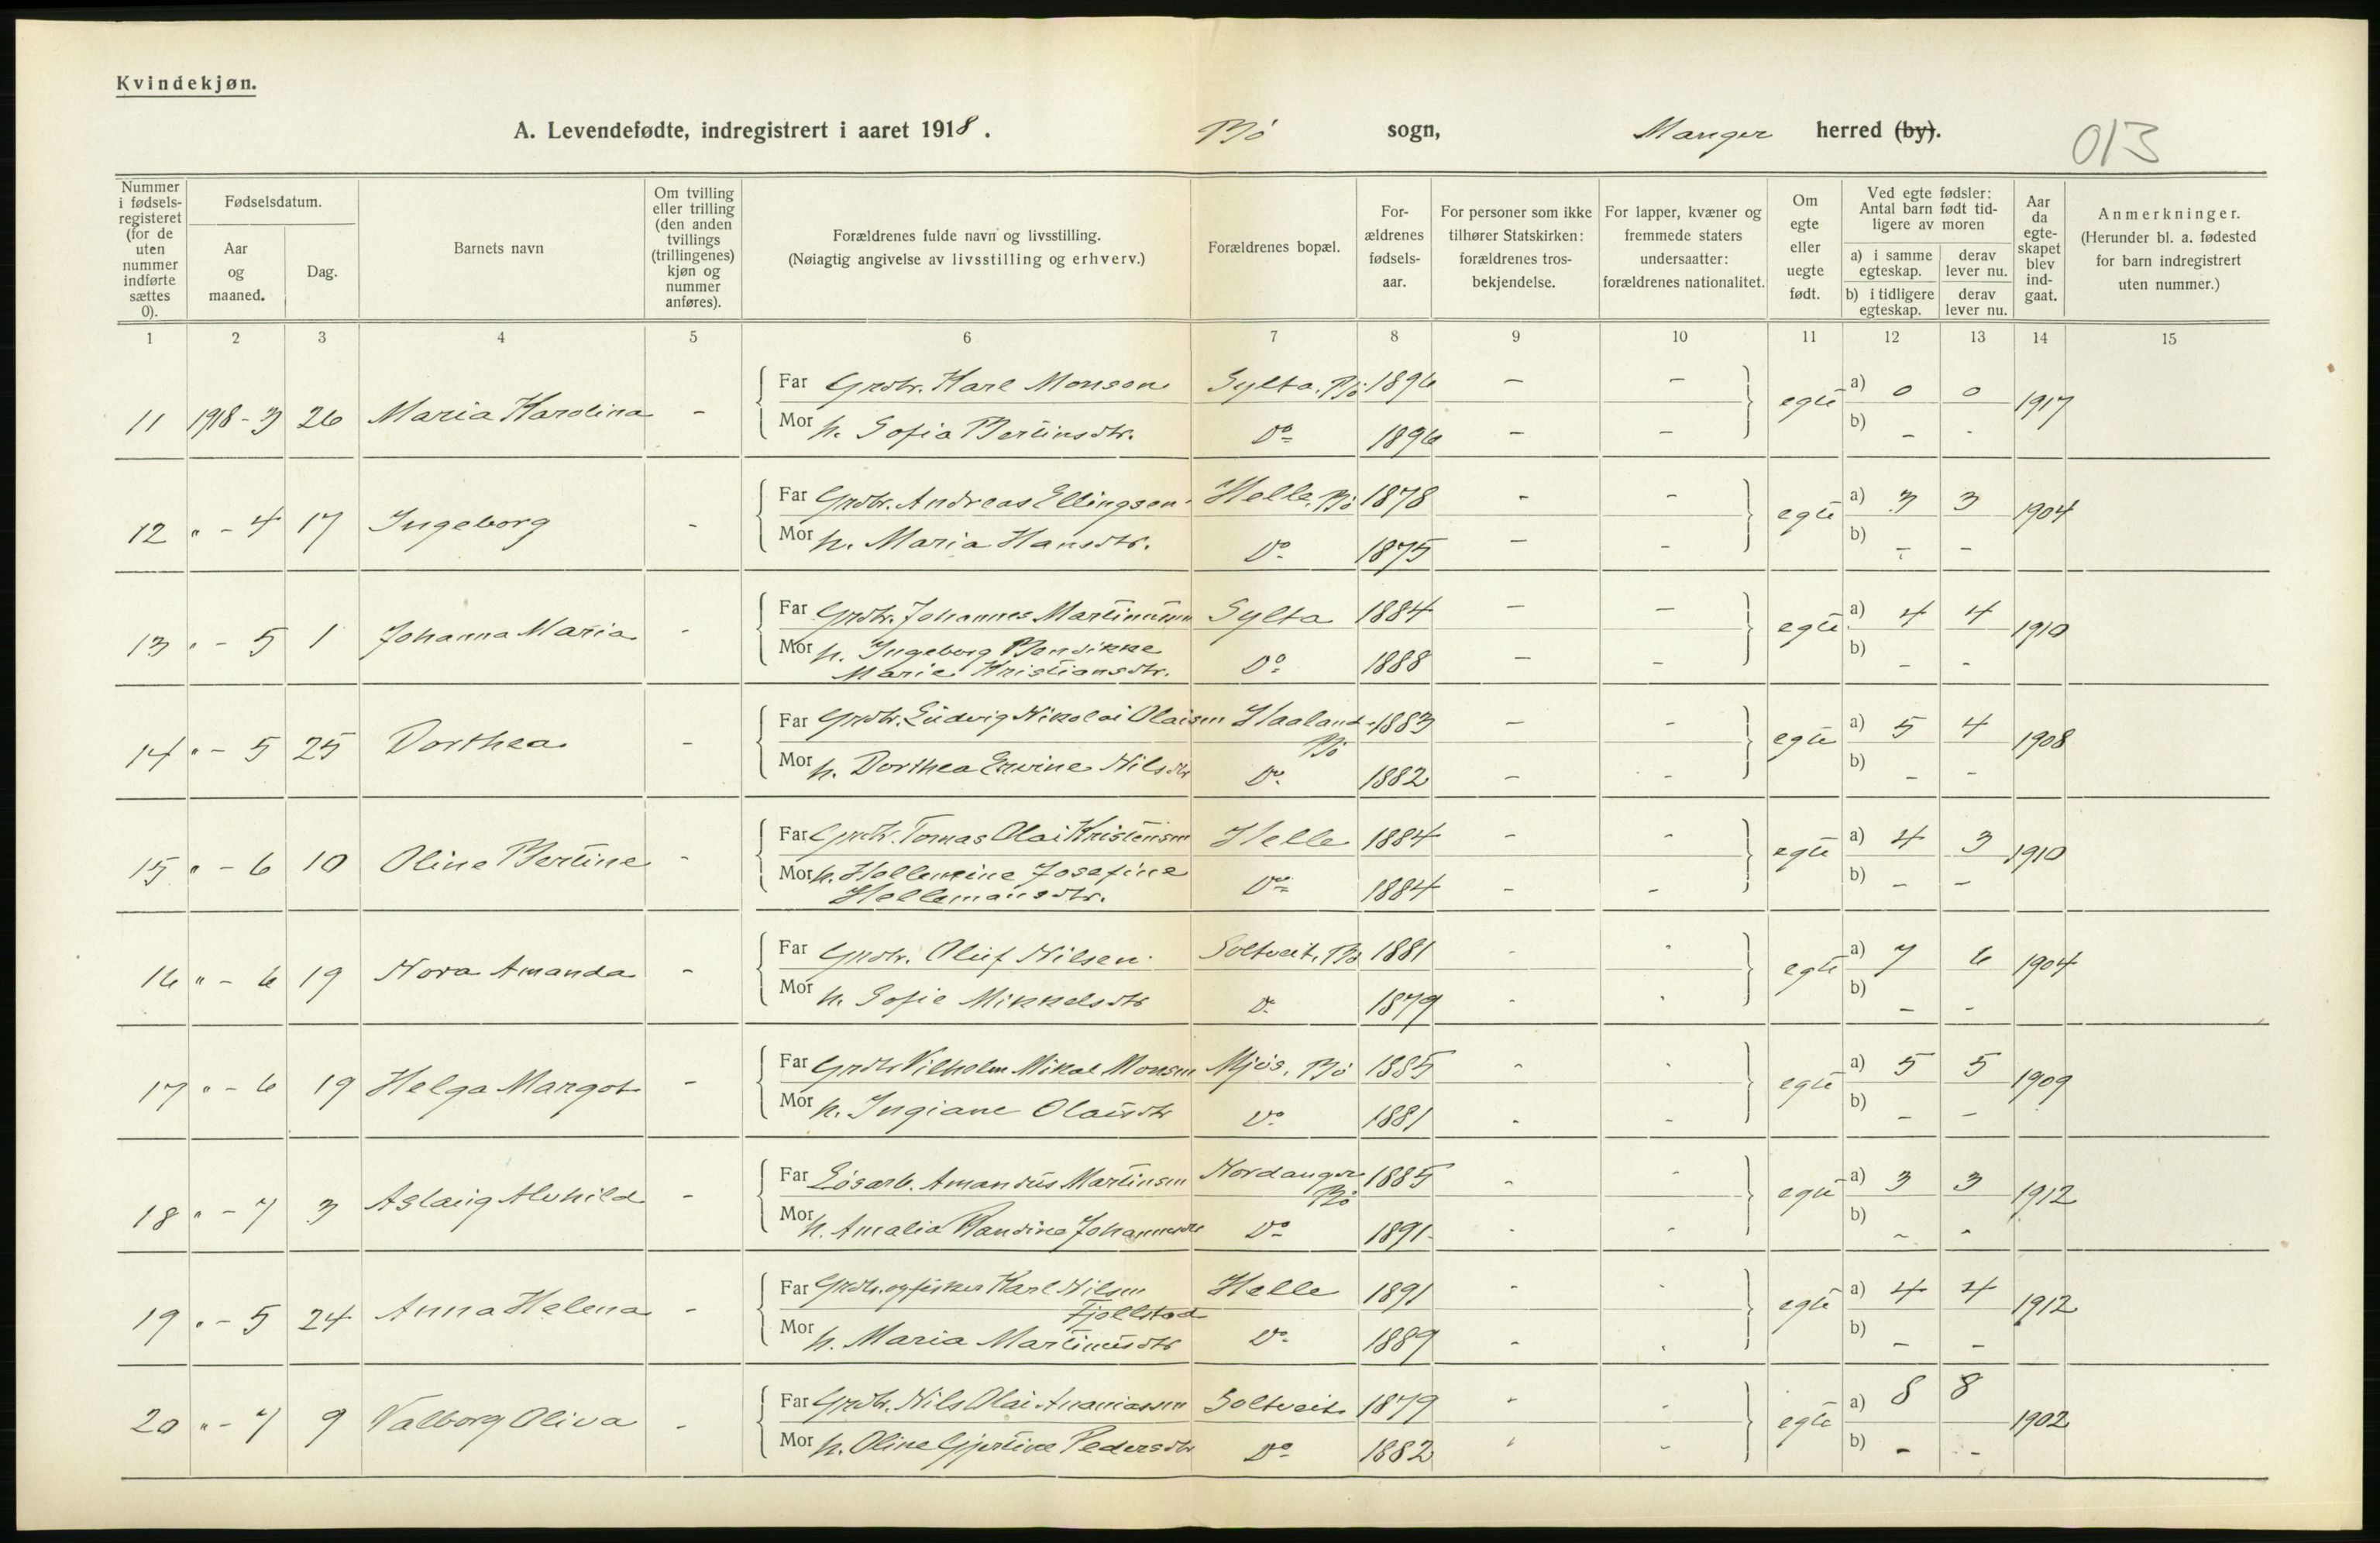 Kvindekjøn.
A. Levendefødte, indregistrert i aaret 1918. Bö sogn, Manger herred (by).
013
Nummer i fødselsregisteret (for de uten nummer indførte sættes 0).
Fødselsdatum.
Aar og maaned.
Dag.
Barnets navn
Om tvilling eller trilling (den anden tvillings (trillingenes) kjøn og nummer anføres).
Forældrenes fulde navn og livsstilling.
(Nøiagtig angivelse av livsstilling og erhverv.)
Forældrenes bopæl.
Forældrenes fødselsaar.
For personer som ikke tilhører Statskirken: forældrenes trosbekjendelse.
For lapper, kvæner og fremmede staters undersaatter: forældrenes nationalitet.
Om egte eller uegte født.
Ved egte fødsler: Antal barn født tidligere av moren
a) i samme egteskap. derav lever nu.
b) i tidligere egteskap. derav lever nu.
Aar da egteskapet blev indgaat.
Anmerkninger.
(Herunder bl. a. fødested for barn indregistrert uten nummer.)
1 2 3 4 5 6 7 8 9 10 11 12 13 14 15
11 1918-3 26 Maria Karolina - Far Grdbr. Karl Monsen Sylta, Bö 1896 - - egte a) 0 0 1917
Mor h. Sofia Bertinsdtr. Do 1896 - - b) - -
12 " - 4 17 Ingeborg - Far Grdbr. Andreas Ellingsen Helle, Bö 1878 - - egte a) 3 3 1904
Mor h. Maria Hansdtr. Do 1875 - - b) - -
13 " - 5 1 Johanna Maria - Far Grdbr. Johannes Martinussen Sylta 1884 - - egte a) 4 4 1910
Mor h. Ingeborg Bendikke
Marie Kristiansdtr. Do 1888 - - b) - -
14 " - 5 25 Dorthea - Far Grdbr. Ludvig Nikolai Olaisen Haaland Bö 1883 - - egte a) 5 4 1908
Mor h. Dorthea Nilsdtr Do 1882 - - b) - -
15 " - 6 10 Oline Bertine - Far Grdbr. Tomas Olai Kristensen Helle 1884 - - egte a) 4 3 1910
Mor h. Josefine
Hellemansdtr. Do 1884 - - b) - -
16 " - 6 19 Nora Amanda - Far Grdbr. Oluf Nilsen Soltveit, Bö 1881 - - egte a) 7 6 1904
Mor h. Sofie Mikkelsdtr Do 1879 - - b) - -
17 " - 6 19 Helga Margot - Far Grdbr Vilhelm Mikal Monsen Mjös, Bö 1885 - - egte a) 5 5 1909
Mor h. Ingiane Olaisdtr Do 1881 - - b) - -
18 " - 7 3 Aslaug Alvhild - Far Lösarb. Amandus Martinsen Nordanger Bö 1885 - - egte a) 3 3 1912
Mor h. Amalia Randina Johannesdtr Do 1891 - - b) - -
19 " - 5 24 Anna Helena - Far Grdbr. og fisker Karl Nilsen
Fjellstad Helle 1891 - - egte a) 4 4 1912
Mor h. Maria Martinusdtr Do 1889 - - b) - -
20 " - 7 9 Valborg Oliva - Far Grdbr. Nils Olai Ananiassen Soltveit 1879 - - egte a) 8 8 1902
Mor h. Oline Gjertine Pedersdtr Do 1882 - - b) - -